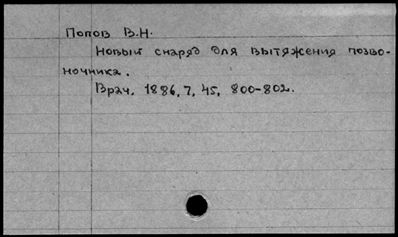 Попов В.Н.
Новый снаряд для вытяжения позво-
ночника.
Врач, 1886, 7, 45, 800-802.